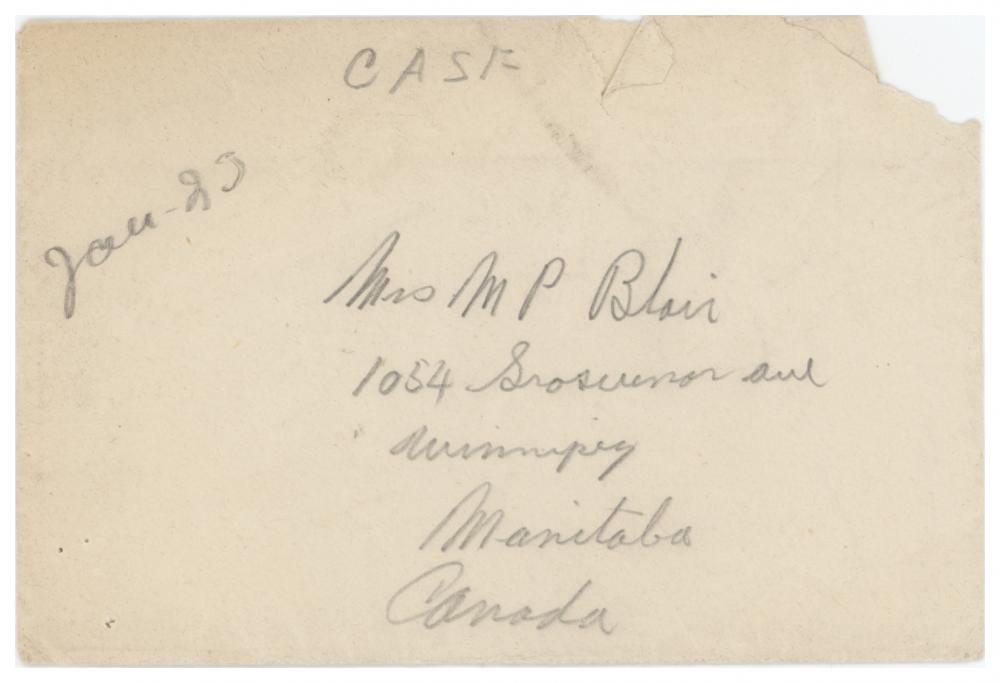 CASF
Jan-25
Mrs M P Blair
1054 Grosvenor ave
Winnipeg
Manitoba
Canada